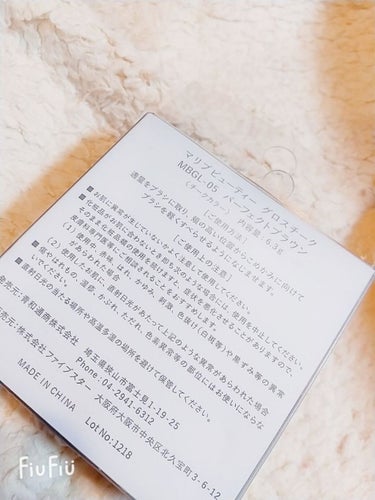 マリブビューティー グロスチーク
MBGL-05 パーフェクトブラウン
(チークカラー) 内容量 6.3g
【ご使用方法】
適量をブラシに取り、頬の高い位置からこめかみに向けて
ブラシを軽くすべらせるようになじませます。
【ご使用上の注意】
■お肌に異常が生じていないかよく注意して使用してください。
■化粧品がお肌に合わないとき即ち次のような場合には、使用を中止してください。
そのまま化粧品類の使用を続けますと、症状を悪化させることがありますので、
皮膚科専門医等にご相談されることをおすすめします。
(1)使用中、赤味、はれ、かゆみ、刺激、色抜け(白斑等)や黒ずみ等の異常
があらわれた場合
(2)使用したお肌に、直射日光があたって上記のような異常があらわれた場合
■傷やはれもの、湿疹、かぶれ、ただれ、色素異常等の部位にはお使いにならな
いでください。
■直射日光の当たる場所や高温多湿の場所を避けて保管してください。
発売元:青和通商株式会社
埼玉県狭山市富士見1-19-25
Phone:04-2941-6312
売元:株式会社ファイブスター 大阪府大阪市中央区北久宝町3-6-12
MADE IN CHINA
Lot No:1218
FiuFiu